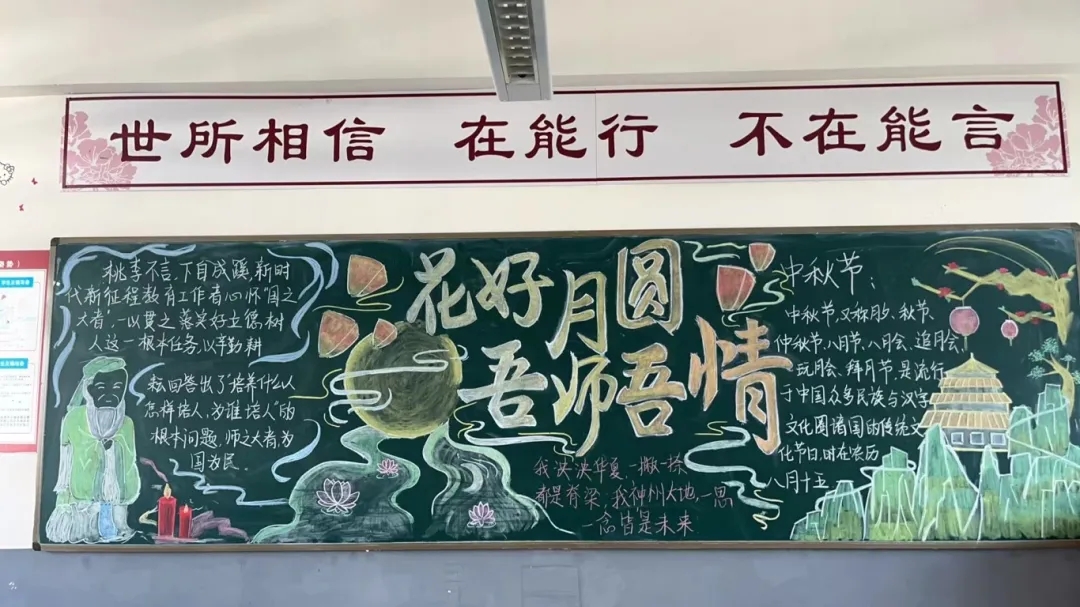 世所相信 在能行 不在能言
桃李不言,下自成蹊,新时
代新征程教育工作者心怀"国之
大者",一以贯之落实好立德树
人这一根本任务,以辛勤耕
耘回答出了"培养什么人
怎样培人,为谁培人"的
根本问题,师之大者为
国为民。
花好月圆
吾师吾情
我泱泱华夏,一撇一捺
都是脊梁,我神州大地,一思
一念皆是未来
中秋节:
中秋节,又称月夕、秋节、
仲秋节、八月节、八月会、追月会、
玩月会、拜月节,是流行
于中国众多民族与汉字
文化圈诸国的传统文
化节日,时在农历
八月十五